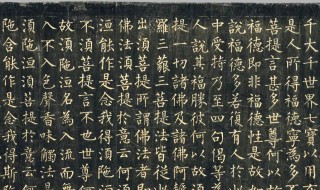 千大千世界七寶以用
是人所得福德寧為多
菩提言甚多世尊何以
福德即非福德性是故
說福德多若復有人於
中受持乃至四句偈等
人說其福勝彼何以故
提一切諸佛及諸佛阿耨
羅三藐三菩提法皆從此
出湏菩提所謂佛法者即
佛法湏菩提於意云何湏
洹能作是念我得湏陁洹
不湏菩提言不也世尊何
故湏陁洹名為入流而無
入不入色聲香味觸法是
湏陁洹湏菩提於意云何
陁含能作是念我得斯陁